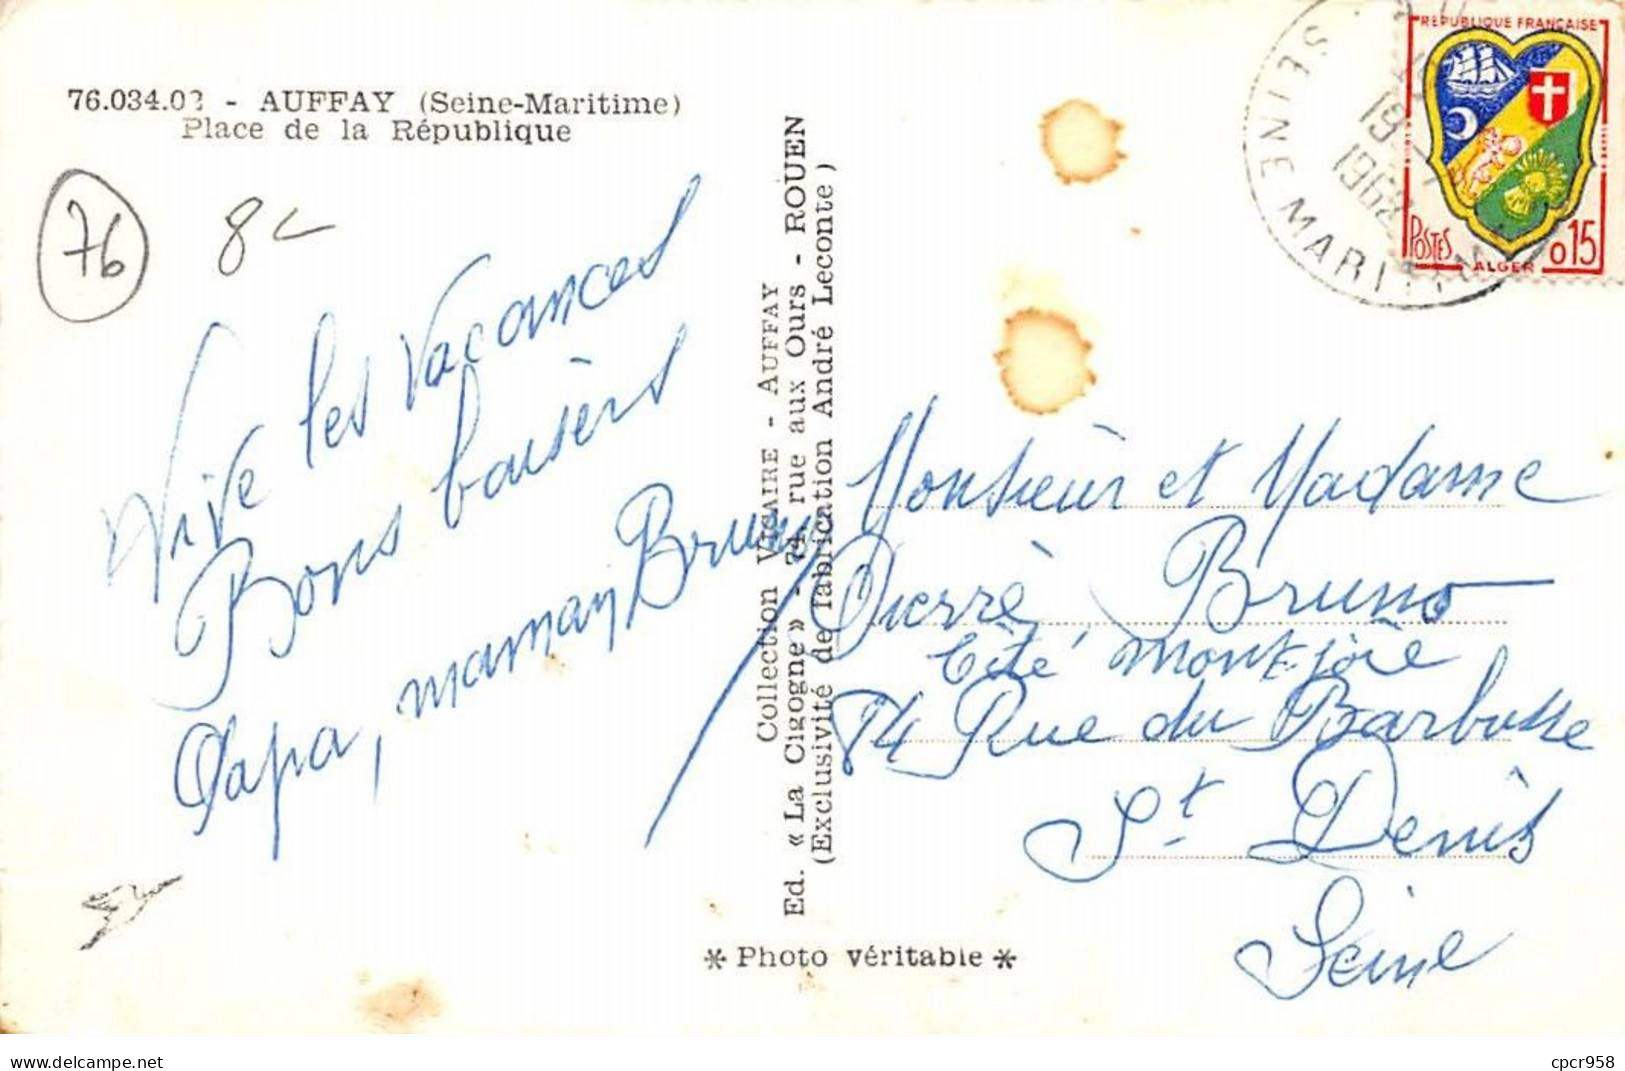 76.034.03 - AUFFAY (Seine-Maritime)
Place de la République
76
8
Vive les vacances
Bons baisers
Papa, maman Bruno
Collection VISAIRE - AUFFAY
Ed. « La Cigogne » - 74, rue aux Ours - ROUEN
(Exclusivité de fabrication André Leconte)
* Photo véritable *
SEINE MARITIME
19
1962
REPUBLIQUE FRANÇAISE
POSTES
ALGER
0.15
Monsieur et Madame
Pierre Bruno
Cité montjoie
84 Rue du Barbusse
St. Denis
Seine
cpcr958